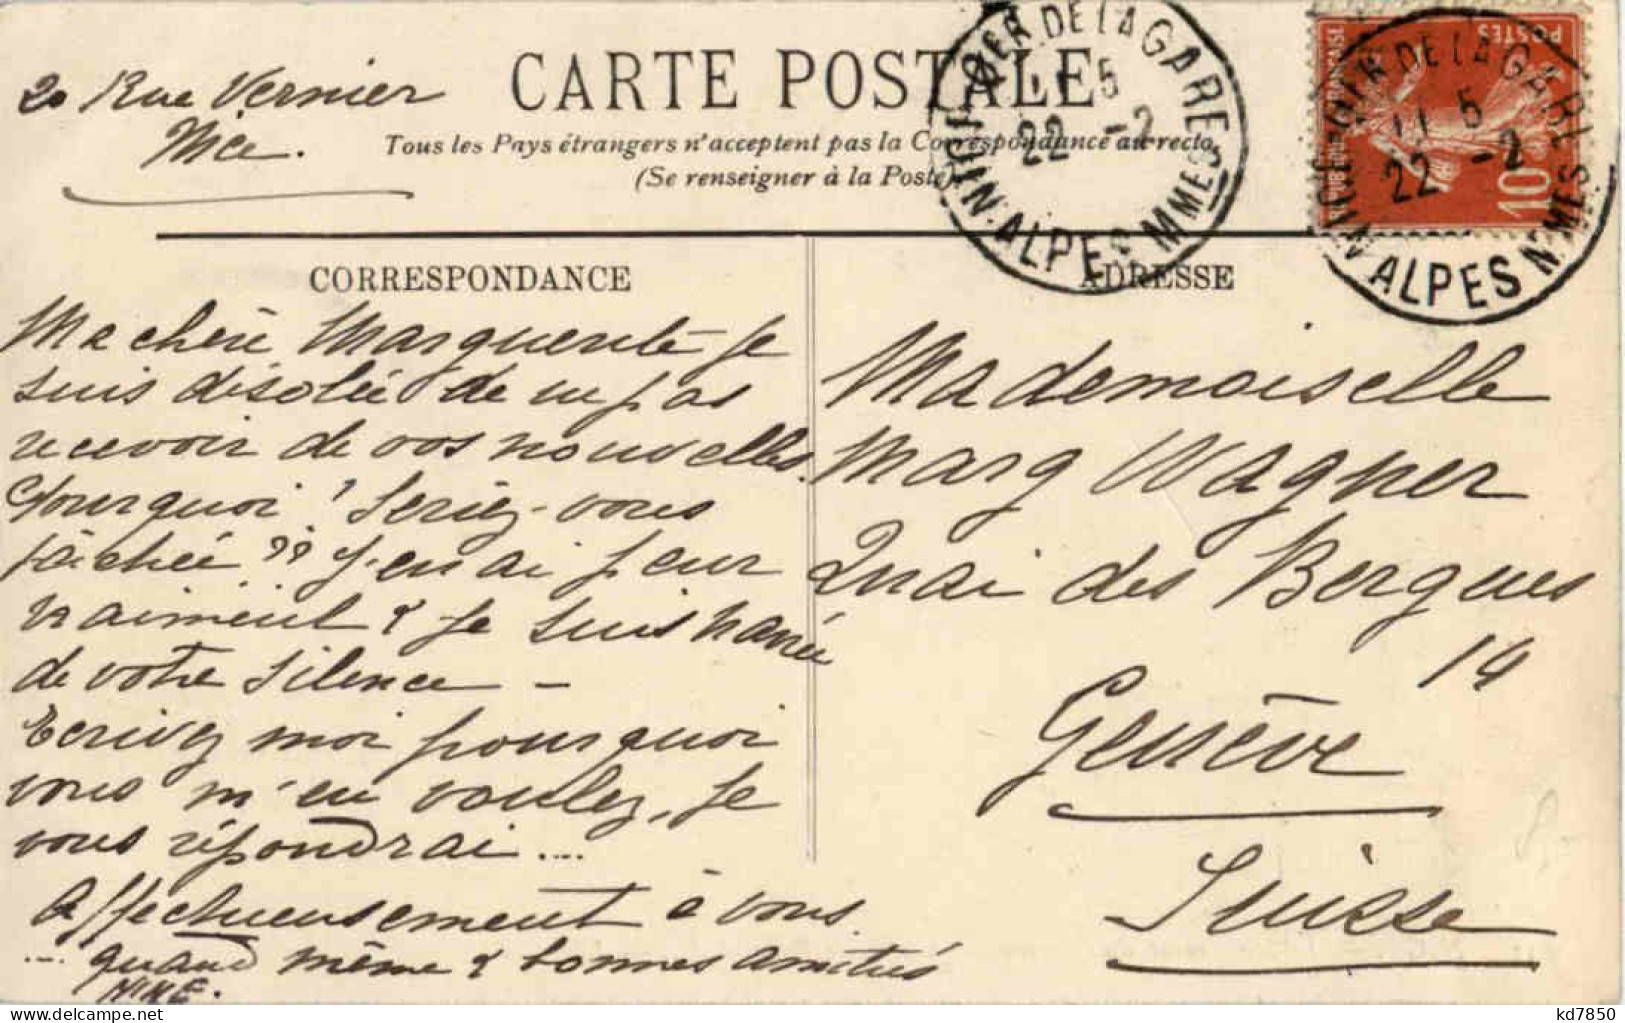 20 Rue Vernier
Nice.
CARTE POSTALE
Tous les Pays étrangers n'acceptent pas la Correspondance au recto
(Se renseigner à la Poste)
QUIN. ALPES MMES
DE LA GARE
11 5
22 -2
POSTES
10
DE LA GARE
11 5
22 -2
ALPES MMES
CORRESPONDANCE
ADRESSE
Ma chère Marguerite je
suis désolée de ne pas
recevoir de vos nouvelles.
Pourquoi? Seriez-vous
fâchée?? J'en ai peur
vraiment & je suis navrée
de votre silence –
Ecrivez moi pourquoi
vous m'en voulez, je
vous répondrai....
Affectueusement à vous
... quand même & bonnes amitiés
NIKE.
Mademoiselle
Marg Wagner
Quai des Bergues
14
Genève
Suisse
kd7850